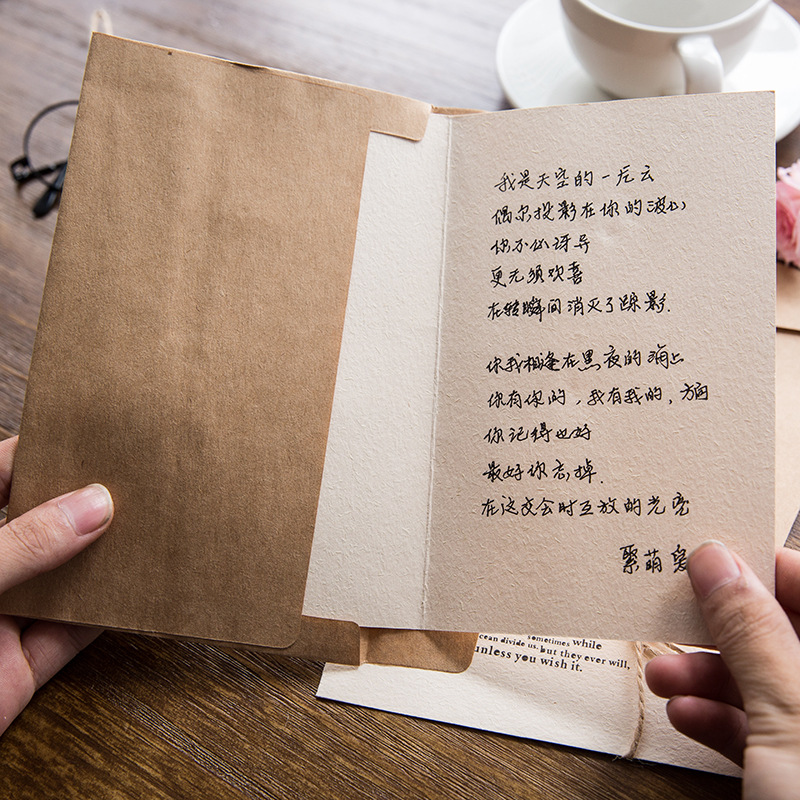 我是天空的一片云
偶尔投影在你的波心
你不必讶异
更无须欢喜
在转瞬间消灭了踪影.
你我相逢在黑夜的海上
你有你的，我有我的，方向
你记得也好
最好你忘掉.
在这交会时互放的光亮
聚萌
sometimes while
cean divide us. but they ever will,
unless you wish it.